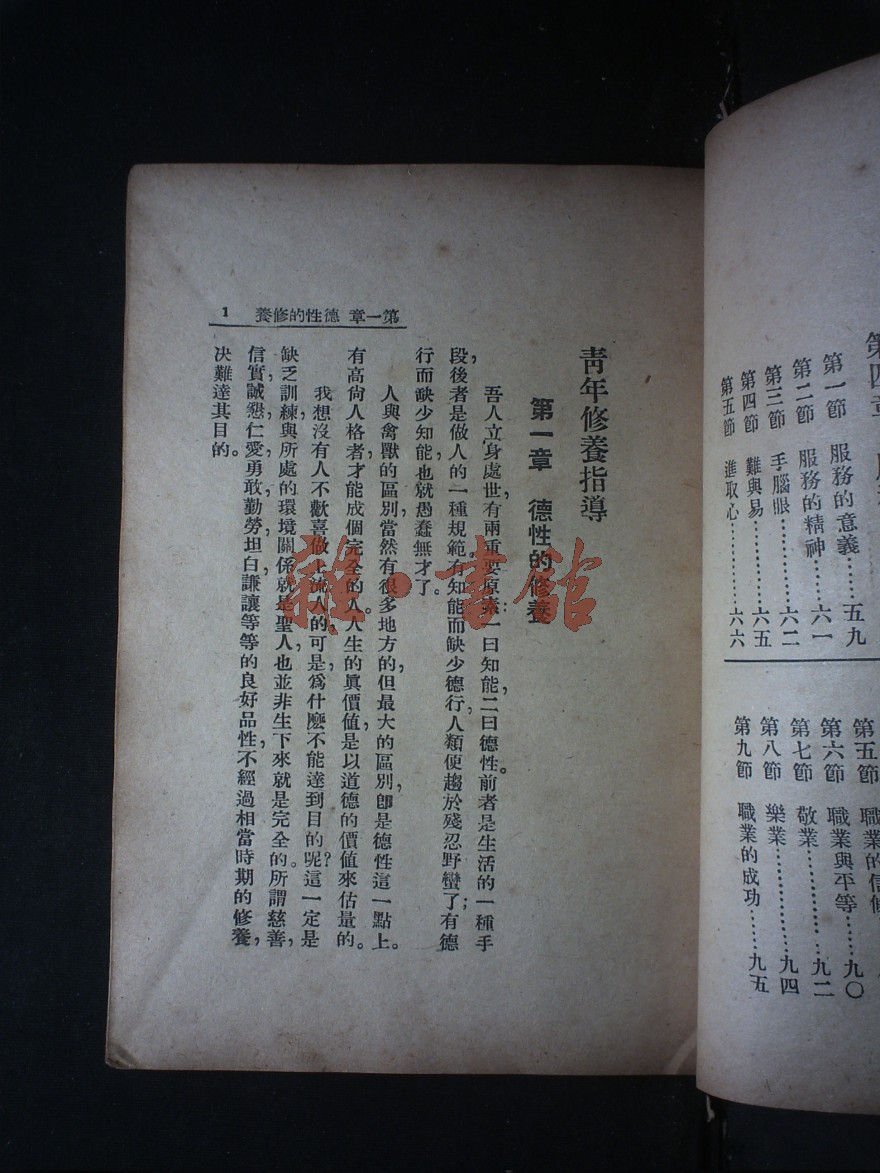 第四章
第一節　服務的意義……五九
第二節　服務的精神……六一
第三節　手腦眼………六二
第四節　難與易………六五
第五節　進取心………六六
第五節　職業的信條
第六節　職業與平等……九〇
第七節　敬業………九二
第八節　樂業………九四
第九節　職業的成功……九五
第一章　德性的修養　1
青年修養指導
第一章　德性的修養
吾人立身處世，有兩重要原素：一曰知能，二曰德性。前者是生活的一種手
段，後者是做人的一種規範。有知能而缺少德行，人類便趨於殘忍野蠻了；有德
行而缺少知能，也就愚蠢無才了。
人與禽獸的區別，當然有很多地方的，但最大的區別，卽是德性這一點上。
有高尙人格者，才能成個完全的人。人生的眞價值，是以道德的價值來估量的。
我想沒有人不歡喜做上流人的，可是爲什麽不能達到目的呢？這一定是
缺乏訓練，與所處的環境關係，就是聖人也並非生下來就是完全的。所謂慈善，
信實，誠懇，仁愛，勇敢，勤勞，坦白，謙讓等等的良好品性，不經過相當時期的修養，
决難達其目的。
雜·書館